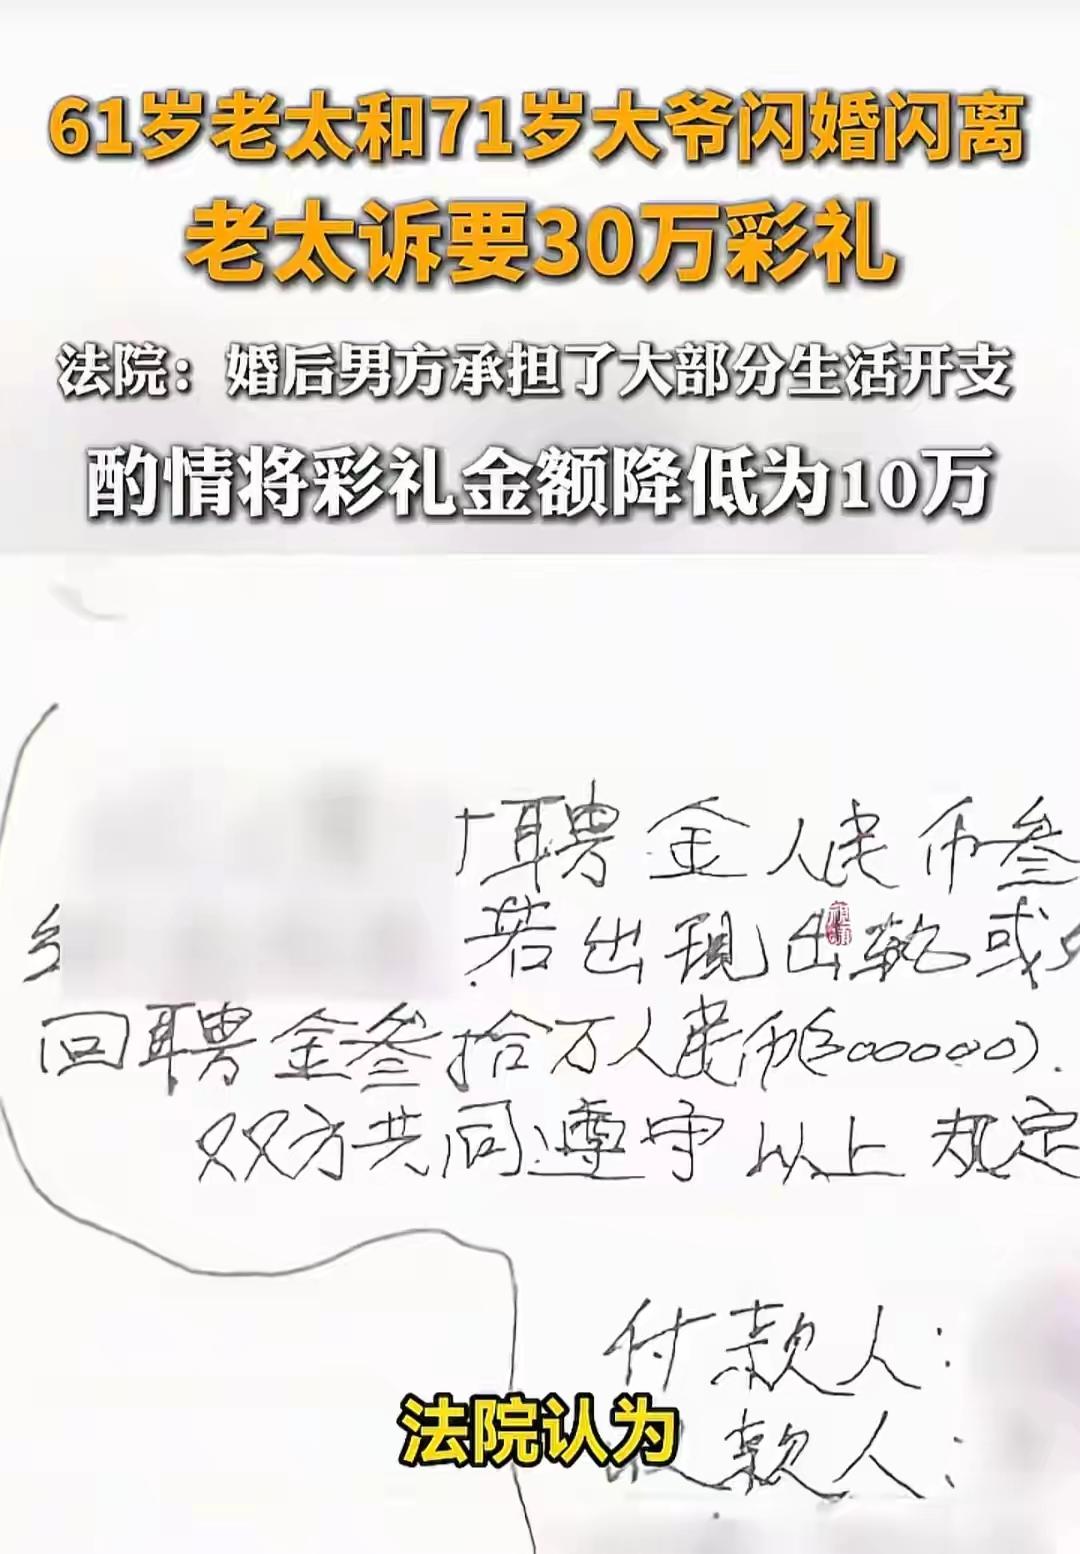 61岁老太和71岁大爷闪婚闪离
老太诉要30万彩礼
法院：婚后男方承担了大部分生活开支
酌情将彩礼金额降低为10万
聘金人民币叁
若出现出轨或
回聘金叁拾万人民币(300000).
双方共同遵守以上规定
付款人：
法院认为
款人：